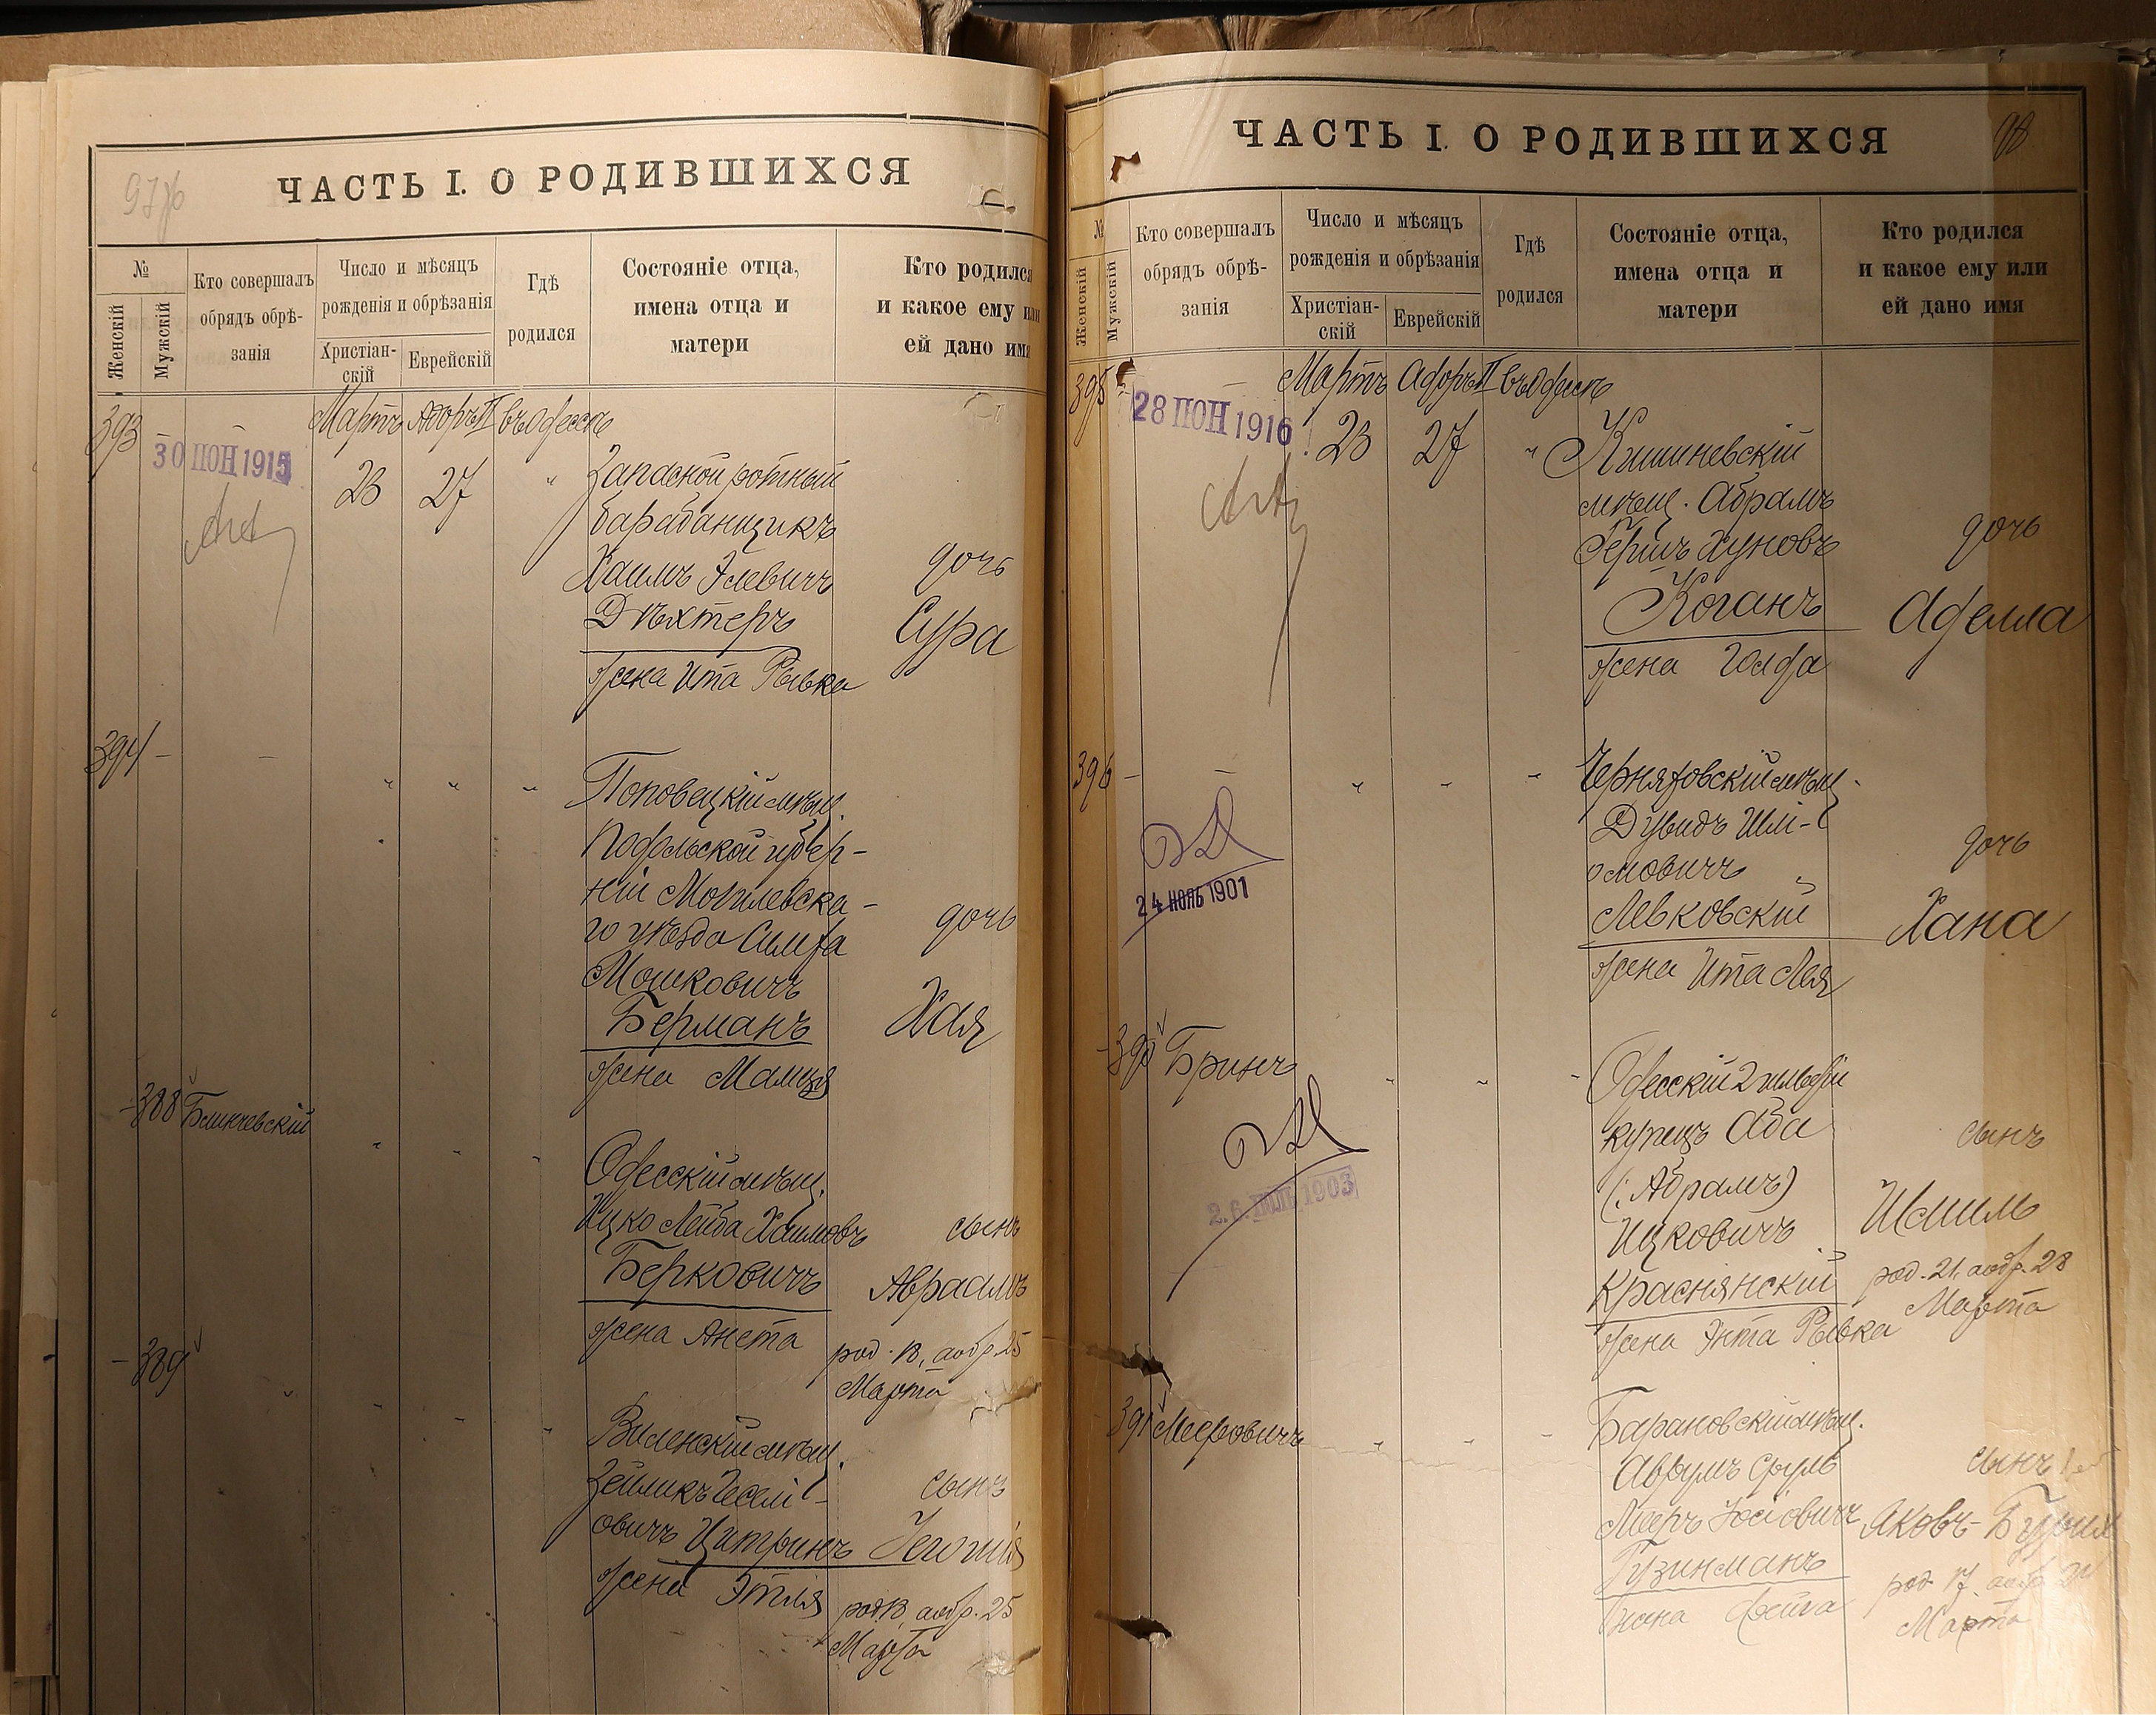 97об
ЧАСТЬ I. О РОДИВШИХСЯ
№
Женскій
Мужскій
Кто совершалъ
обрядъ обрѣ-
занія
Число и мѣсяцъ
рожденія и обрѣзанія
Христіан-
скій
Еврейскій
Гдѣ
родился
Состояніе отца,
имена отца и
матери
Кто родился
и какое ему или
ей дано имя
Мартъ Адоръ II въ Одессѣ
393 – –
30 ІЮН 1915
23 27 "
Запасной ротный
барабанщикъ
Хаимъ Элевичъ
Дѣхтеръ
жена Ита Рывка
дочь
Сура
394 – –
" " "
Поповецкій мѣщ.
Подольской губер-
ніи Могилевска-
го уѣзда Симха
Мошковичъ
Берманъ
жена Малця
дочь
Хая
– 388 Блинчевскій
" " "
Одесскій мѣщ.
Ицко Лейба Хаимовъ
Берковичъ
жена Анета
сынъ
Авраамъ
род. 18, аобр. 25
Марта
– 389 "
" " "
Виленскій мѣщ.
Зеймикъ Іосел-
овичъ Цитринъ
жена Этля
сынъ
род 18 аобр. 25
Марта
98
ЧАСТЬ I. О РОДИВШИХСЯ
№
Женскій
Мужскій
Кто совершалъ
обрядъ обрѣ-
занія
Число и мѣсяцъ
рожденія и обрѣзанія
Христіан-
скій
Еврейскій
Гдѣ
родился
Состояніе отца,
имена отца и
матери
Кто родился
и какое ему или
ей дано имя
Мартъ Адоръ II въ Одессѣ
395 –
28 ІЮН 1916
23 27 "
Кишиневскій
мѣщ. Абрамъ
Гершъ Хуновъ
Коганъ
жена Голда
дочь
Аделла
396 – –
" " "
24 НОЯБ 1901
Черняховскій мѣщ.
Дувидъ Шлі-
омовичъ
Левковскій
жена Ита Лея
дочь
Хана
– 390 Бринъ
" " "
2.6. ІЮЛ 1903
Одесскій 2 гильдіи
купецъ Аба
(:Абрамъ)
Ицковичъ
Краснянскій
жена Энта Рывка
сынъ
Шлима
род. 21, аобр. 28
Марта
391 Мееровичъ
" " "
Барановскій мѣщ.
Аврумъ Сруль
Мееръ Іосіовичъ
Гузинманъ
жена Фейга
сынъ
Яковъ-
род. 17 аобр.
Марта